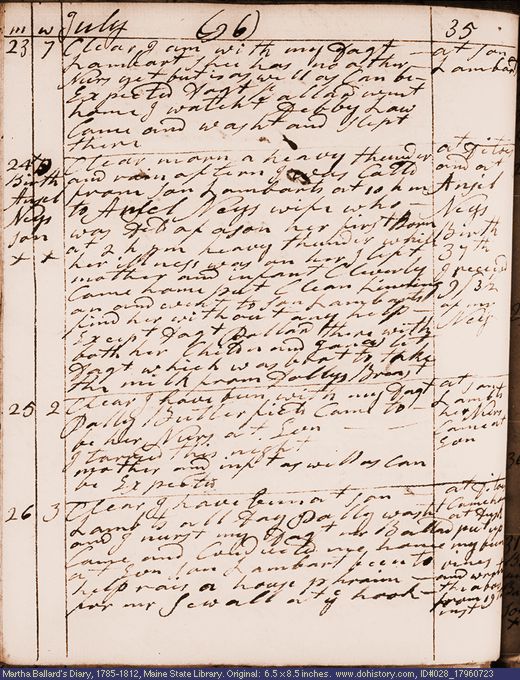 m w July (96) 35
23 7 Clear I am with my Dagt at Son
Lambart Shee has no other Lambard
Nurs yet but is as well as Can be
Expected Dagt Ballard went
home I watcht Debby Low
Came and washt and Slept
there
24th D Clear morn a heavy thunder at ditoes
Birth and rain aftern I was Calld and at
Ansel from Son Lambarts at 10 h m Ansel
Neys to Ansel Neys wife who Neys
Son was DeD of a son her first born Birth
x x at 2 h pm heavy thunder while 37th
her illness was on her I left I receid
mother and infant Cleverly 9/ 
Came home put Clean Linning of mr
on and went to Son Lambarts Neys
find her without any help
Except Dagt Ballard there with
both her Children and
Dagt which was to take
the milk from Dollys Breast
25 2 Clear I have been with my Dagt at Sons
Dally Butterfield Came to Lambts
be her Nurs at Son her Nurs
I tarried this night Came at
mother and inft as well as Can Son
be Expected
26 3 Clear I have been at Son at ditos
Lambts all day Dally washt
and I nurst my Dagt mr Ballard put up
Came and Conducted me home my
at Son Son Lambart went to
help rais a house phraim and
for mr Sewall at ye hook from 19th
inst
Martha Ballard's Diary, 1785-1812, Maine State Library. Original: 6.5 x 8.5 inches. www.dohistory.com, ID#028_17960723